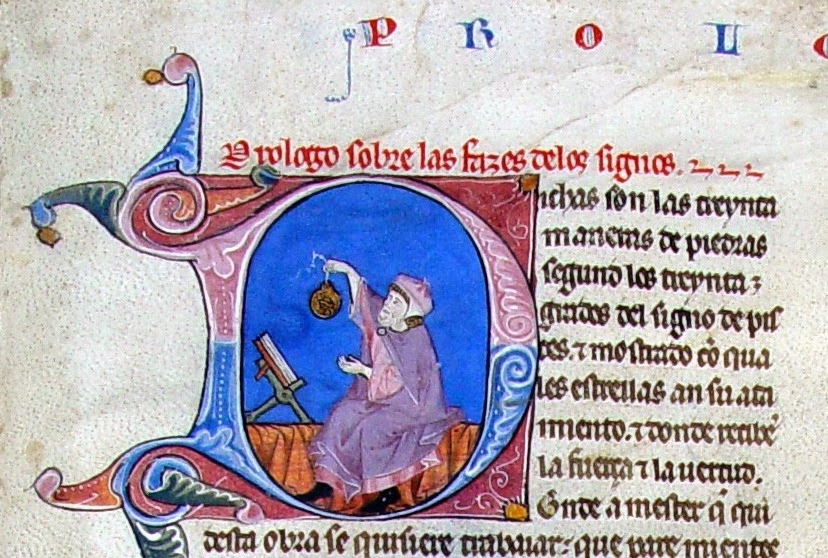 P R O L O
Prologo sobre las fazes delos signos.
Dichas son las treynta
maneras de piedras
segund los treynta ⁊
grados del signo de pis
ces. ⁊ mostrado cõ qua
les estrellas an su ata
miento. ⁊ donde recibẽ
la fuerça ⁊ la uertud.
Onde a mester q̃ qui
desta obra se quisiere trabaiar: que pare mientre